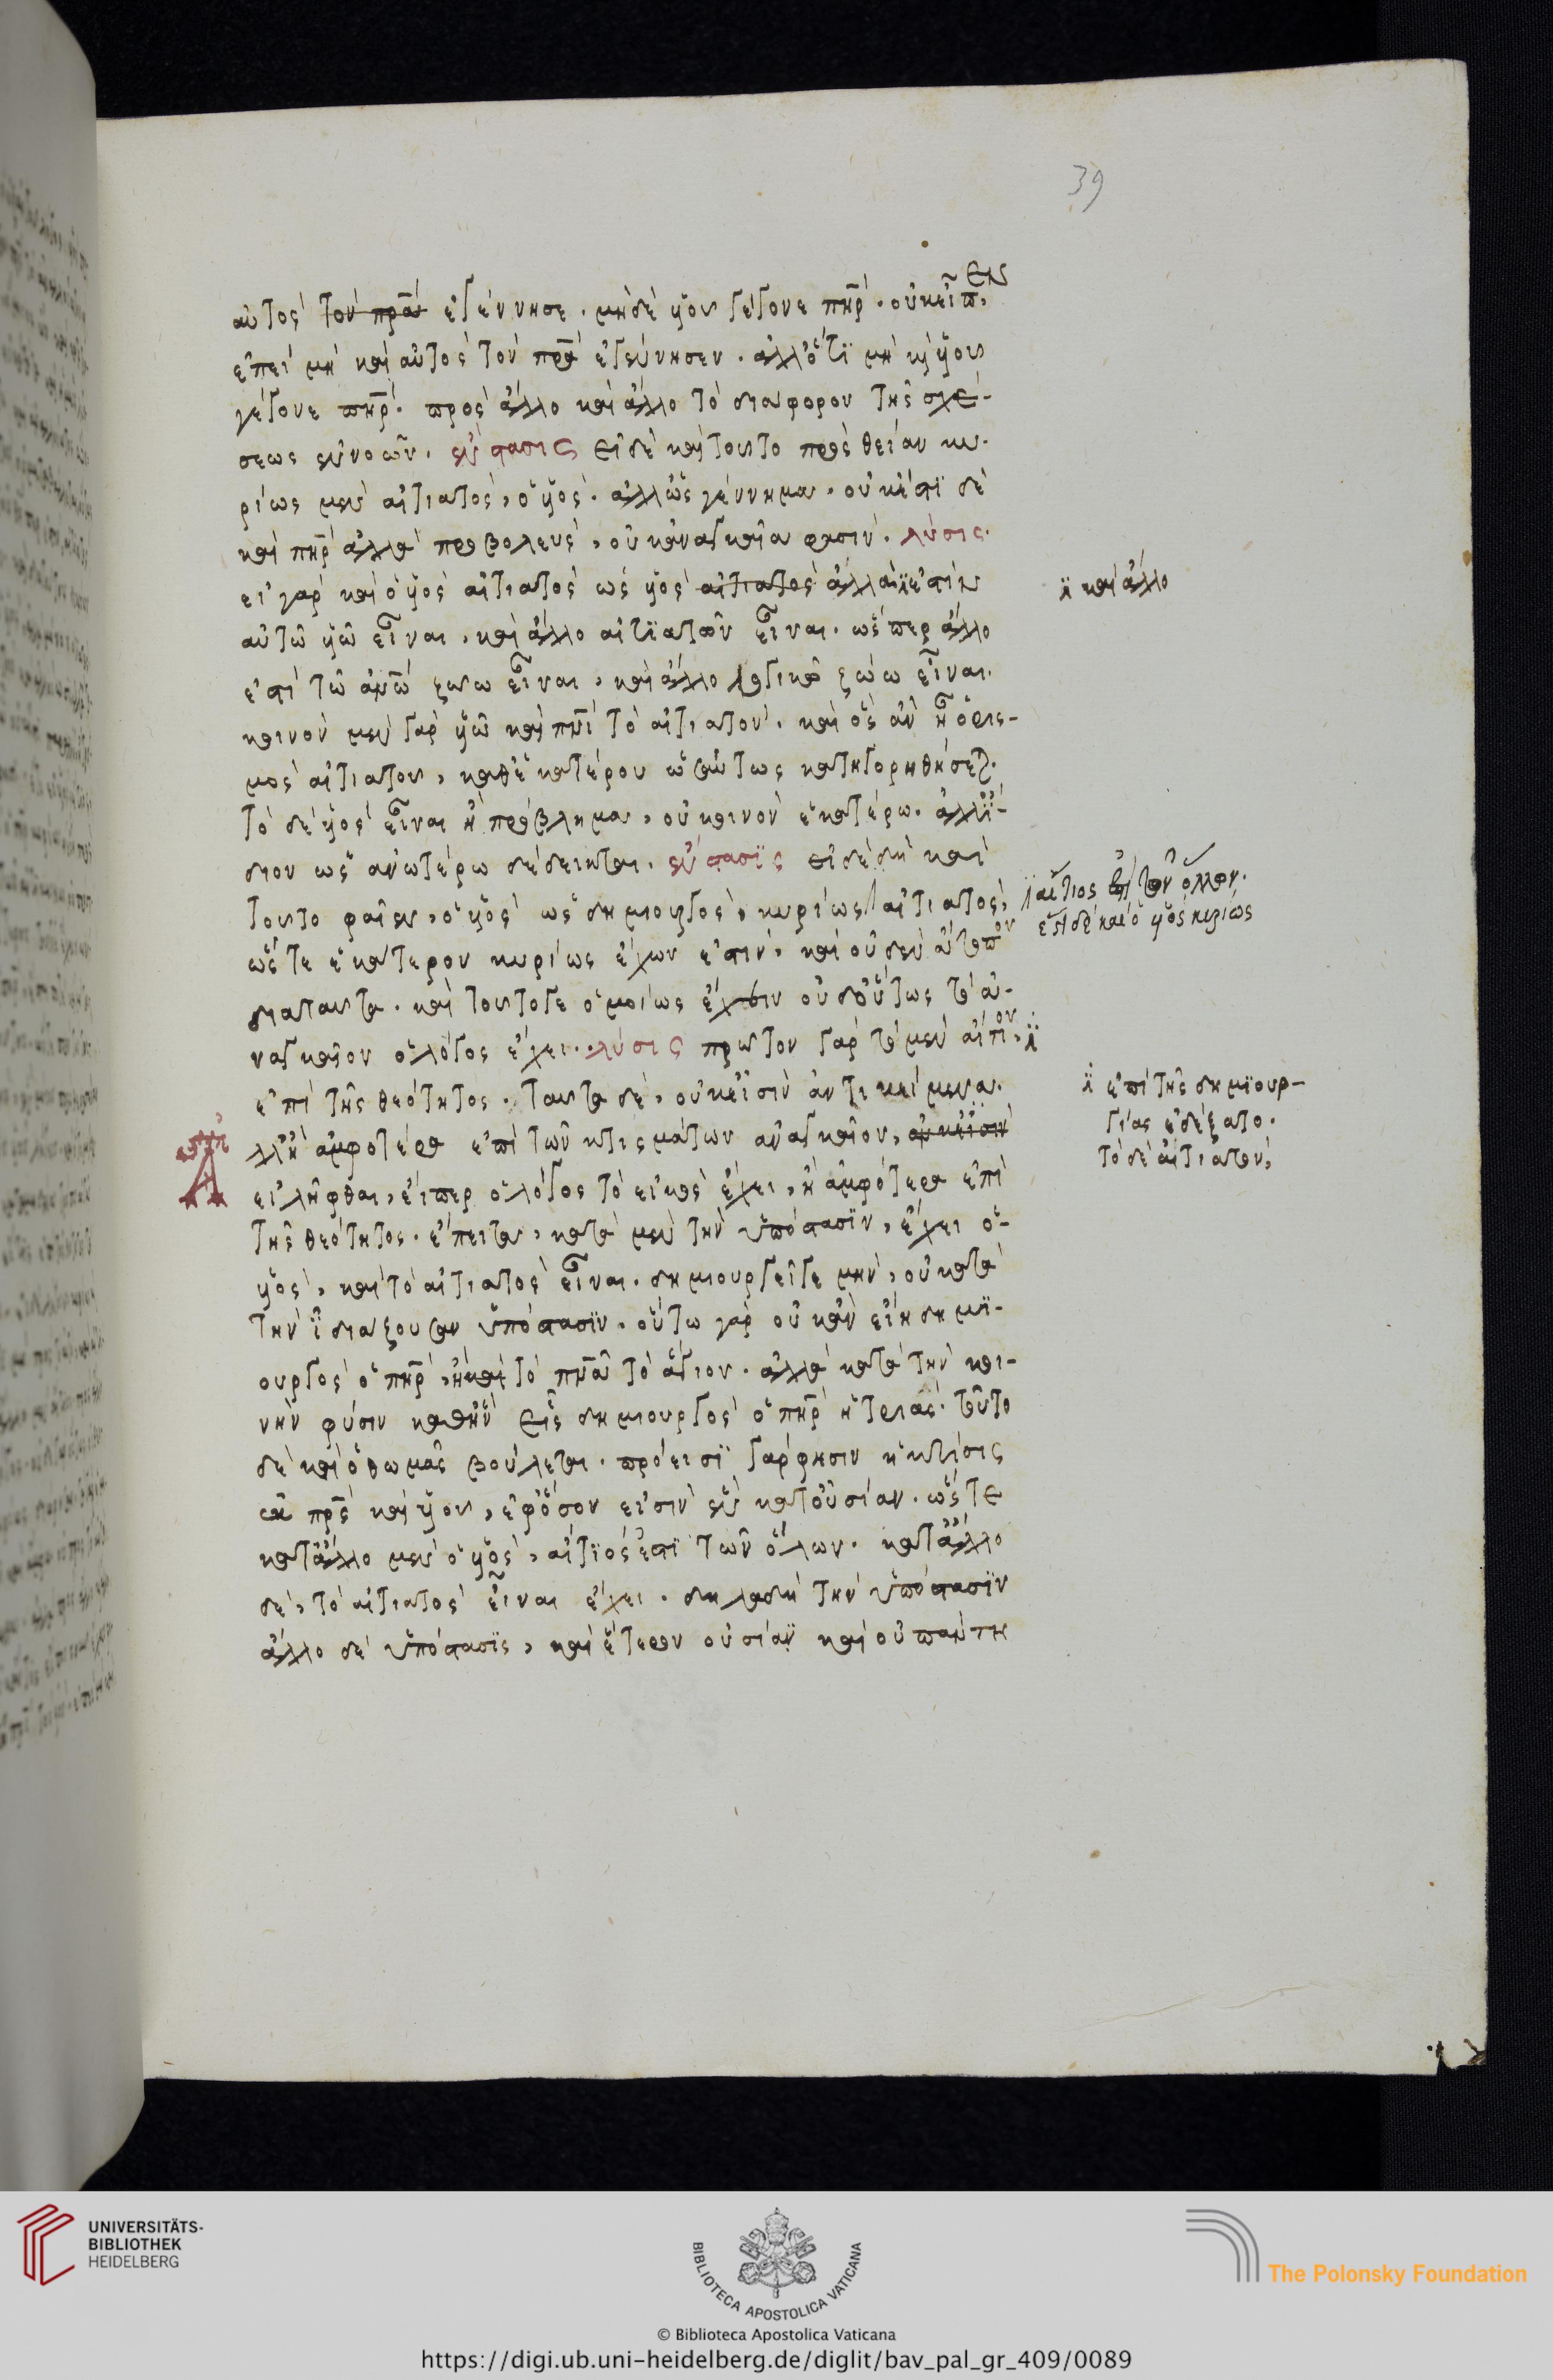 39
αὐτὸς τὸν πρ̅α ἐγέννησε. μηδὲ υἱοῦ γέγονε πη̅ρ. οὐκ εἶπεν,
ἐπεὶ μὴ καὶ αὐτὸς τὸν πρ̅α ἐγέννησεν. ἀλλ' ὅτι μὴ καὶ υἱοῦ
γέγονε πη̅ρ. πρὸς ἄλλο καὶ ἄλλο τὸ διάφορον τῆς σχέ-
σεως ἐννοῶν. ἔνστασις εἰ δὲ καὶ τοῦτο πρὸς θείαν κυ-
ρίως μὲν αἰτιατὸς, ὁ υἱὸς. ἀλλ' ὡς γέννημα. οὐκ ἔστι δὲ
καὶ πη̅ρ ἀλλὰ προβολεὺς, οὐκ ἀναγκαῖα φασίν. λύσις.
εἰ γὰρ καὶ ὁ υἱὸς αἰτιατὸς ὡς υἱὸς αἰτιατὸς ἀλλ' ἐστὶν
αὐτῶ υἱῶ εἶναι, καὶ ἄλλο αἰτιατὸν εἶναι. ὥσπερ ἄλλο
ἐστὶ τῶ ἀν̅ω ζώω εἶναι, καὶ ἄλλο λογικῶ ζώω εἶναι.
κοινὸν μὲν γὰρ υἱῶ καὶ πν̅ι τὸ αἰτιατὸν. καὶ ὃς ἂν ἦ ὁρισ-
μὸς αἰτιατοῦ, καθ' ἑκατέρου ὡσαύτως κατηγορηθήσεται.
τὸ δὲ υἱὸς εἶναι ἢ πρόβλημα, οὐ κοινὸν ἑκατέρω. ἀλλ' ἴ-
διον ὡς ἀνωτέρω δέδεικται. ἔνστασις εἰ δὲ δὴ καὶ
τοῦτο φαῖεν, ὁ υἱὸς ὡς δημιουργὸς, κυρίως αἰτιατὸς,
ὥστε ἑκάτερον κυρίως ἔχων ἐστὶν. καὶ οὐδὲν ἄτοπον
διὰ ταῦτα. καὶ τοῦτό γε ὁμοίως ἔχειν οὐδ' οὕτως τὸ ἀ-
ναγκαῖον ὁ λόγος ἔχει. λύσις πρῶτον γὰρ τὸ μὲν αἴτιον,
ἐπὶ τῆς θεότητος. ταῦτα δὲ, οὐκ εἰσὶν ἀντικείμενα.
ἀλλ' ἢ ἀμφότερα ἐπὶ τῶν κτισμάτων ἀναγκαῖον, οὐκ εἰσὶν
εἰλῆφθαι, εἴπερ ὁ λόγος τὸ εἰκὸς ἔχει, ἢ ἀμφότερα ἐπὶ
τῆς θεότητος. ἔπειτα, κατὰ μὲν τὴν ὑπόστασιν, ἔχει ὁ
υἱὸς, καὶ τὸ αἰτιατὸς εἶναι. δημιουργεῖ γε μὴν, οὐ κατὰ
τὴν ἰδιάζουσαν ὑπόστασιν. οὕτω γὰρ οὐκ ἂν εἴη δημι-
ουργὸς ὁ πη̅ρ, ἢ καὶ τὸ πν̅α τὸ ἅγιον. ἀλλὰ κατὰ τὴν κοι-
νὴν φύσιν καθ' ἣν εἷς δημιουργὸς ὁ πη̅ρ ἡ τριὰς. τοῦτο
δὲ καὶ ὁ θωμᾶς βούλεται. πρόεισι γὰρ φησιν ἡ κτίσις
ἐκ πρ̅ς καὶ υἱοῦ, ἐφ' ὅσον εἰσὶν ἓν κατ' οὐσίαν. ὥστε
κατ' ἄλλο μὲν ὁ υἱὸς, αἴτιός ἐστι τῶν ὅλων. κατ' ἄλλο
δὲ, τὸ αἰτιατὸς εἶναι ἔχει. δηλαδὴ τὴν ὑπόστασιν
ἄλλο δὲ ὑπόστασις, καὶ ἕτερον οὐσία καὶ οὐ πάντη
καὶ ἄλλο
αἴτιος ἐπὶ τῶν ὅλων.
ἔστι δὲ καὶ ὁ υἱὸς κυρίως
ἐπὶ τῆς δημιουρ-
γίας ἐδέξατο.
τὸ δὲ αἰτιατὸν,
UNIVERSITÄTS-
BIBLIOTHEK
HEIDELBERG
BIBLIOTECA APOSTOLICA VATICANA
The Polonsky Foundation
© Biblioteca Apostolica Vaticana
https://digi.ub.uni-heidelberg.de/diglit/bav_pal_gr_409/0089